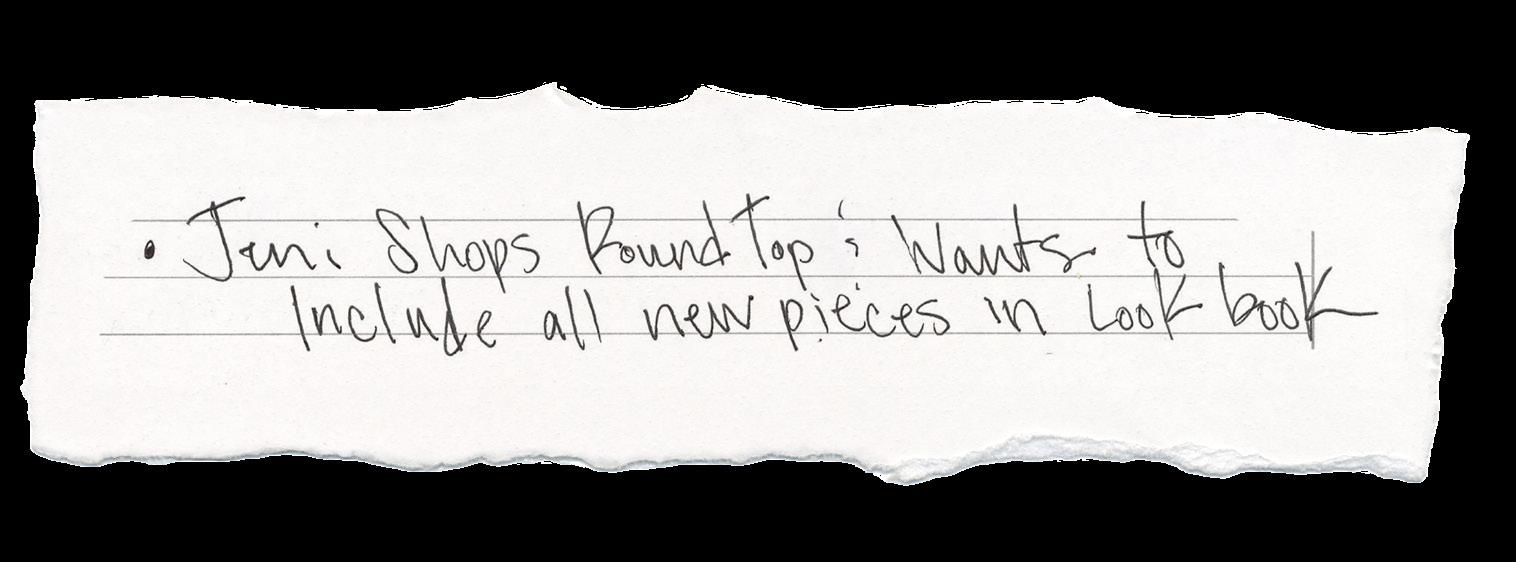 • Jeni Shops Round Top & Wants to
Include all new pieces in Look book